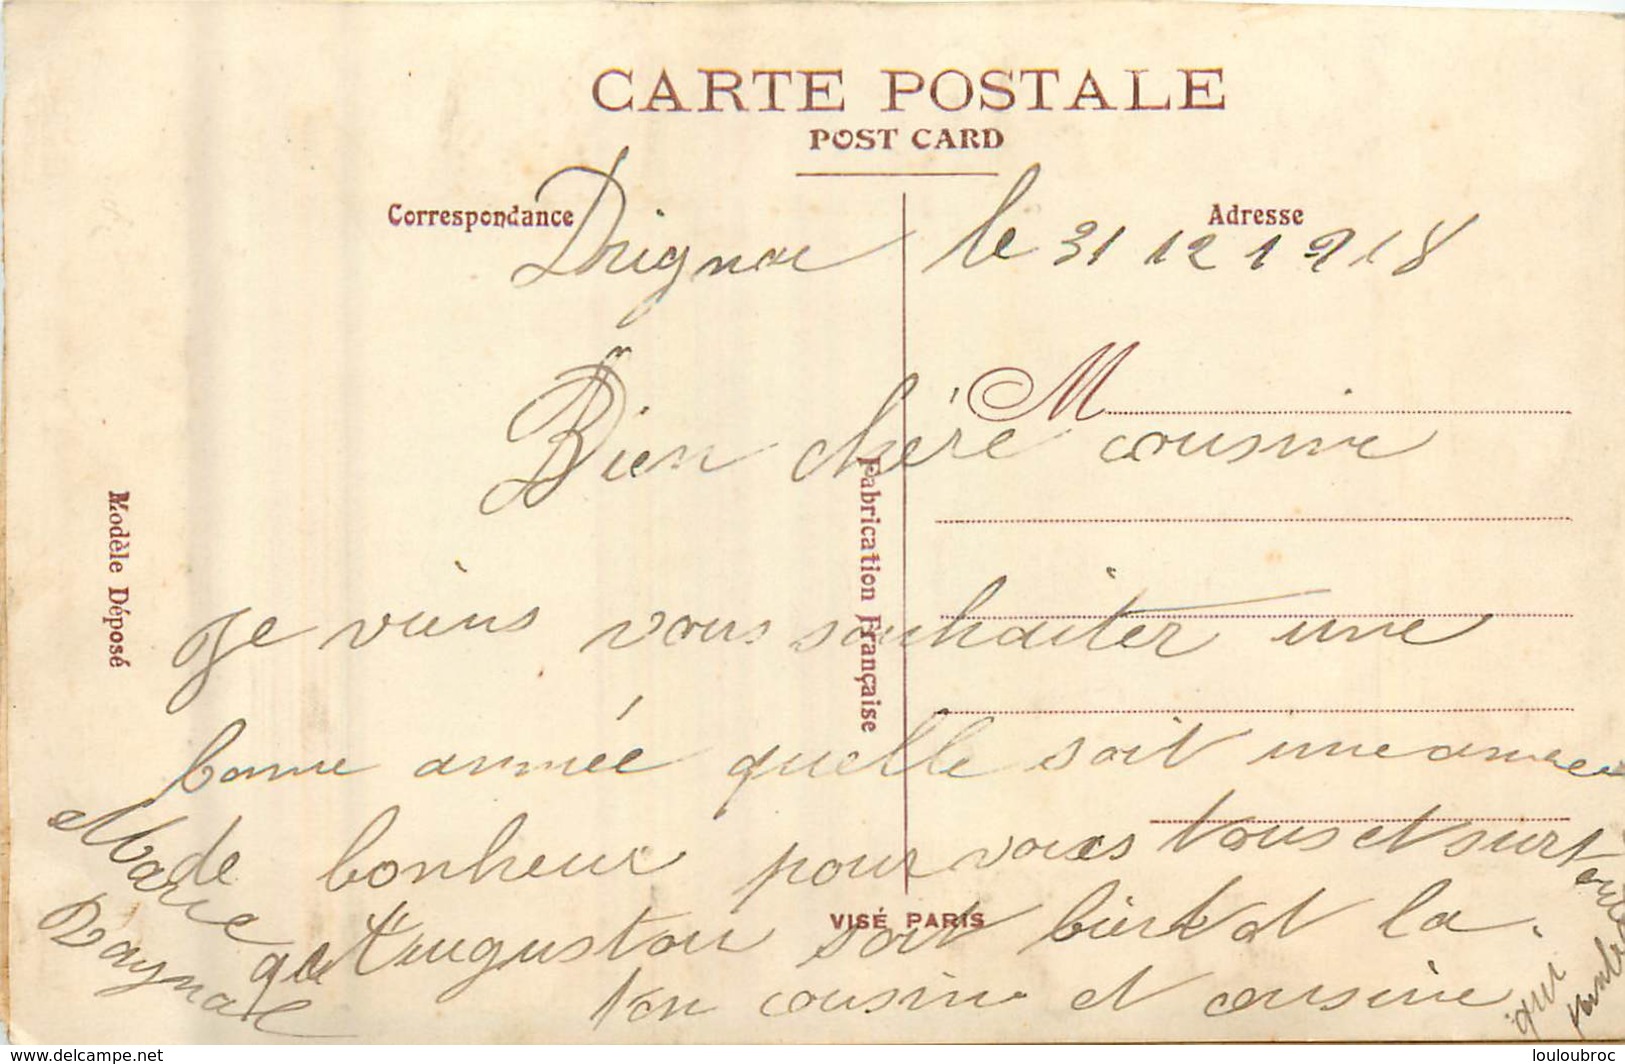 CARTE POSTALE
POST CARD
Correspondance
Adresse
Drignac le 31 12 1918
M
Bien chére cousine
Modèle Déposé
Fabrication Française
Je viens vous souhaiter une
bonne année quelle soit une annee
de bonheur pour vous tous et surtout
que Auguston soit bientot la.
ton cousin et cousine
qui
Marie
VISÉ PARIS
https://www.delcampe.net
louloubroc